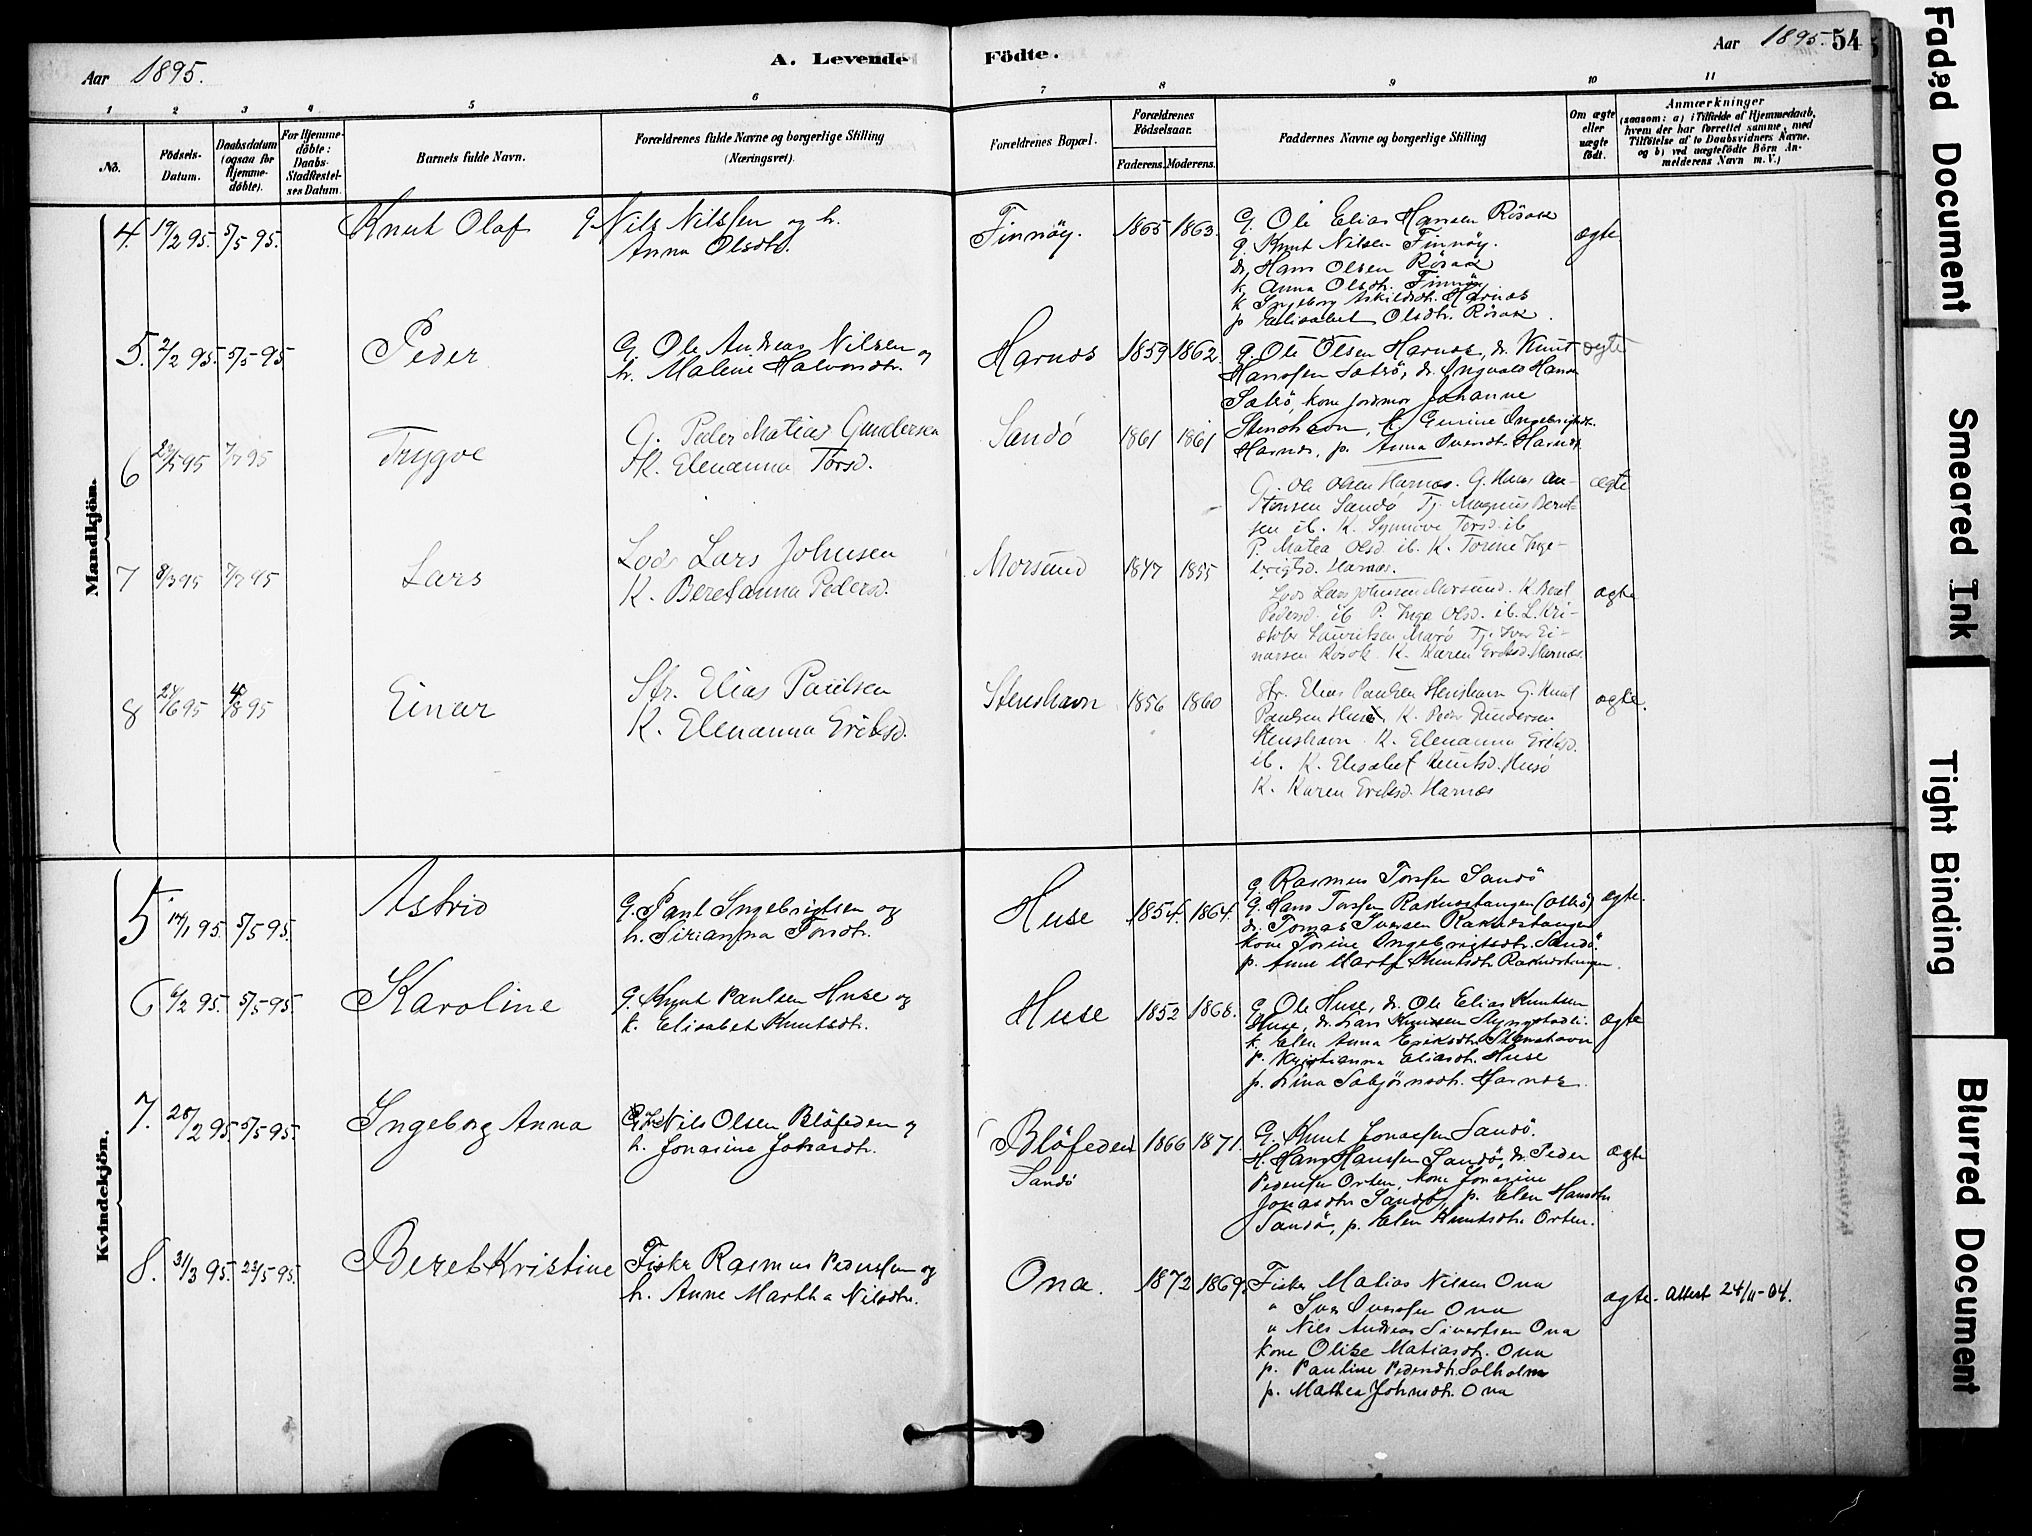 Aar 1895.
A. Levende Födte.
Aar 1895. 54
1 2 3 4 5 6 7 8 9 10 11
No.
Födsels-
Datum.
Daabsdatum
(ogsaa for
Hjemme-
döbte).
For Hjemme-
döbte:
Daabs-
Stadfæstel-
ses Datum.
Barnets fulde Navn.
Forældrenes fulde Navne og borgerlige Stilling
(Næringsvei).
Forældrenes Bopæl.
Forældrenes
Födselsaar.
Faderens. Moderens.
Faddernes Navne og borgerlige Stilling
Om ægte
eller
uægte
födt.
Anmærkninger
(saasom: a) i Tilfælde af Hjemmedaab,
hvem der har forrettet samme, med
Tilföielse af to Daabsvidners Navne.
og b) ved uægtefödte Börn An-
melderens Navn m. V.)
Mandkjön.
4. 19/2 95. 5/5 95. Knut Olaf
G Nils Nilssen og h.
Anna Olsdtr.
Finnöy. 1865 1863.
G. Ole Elias Hansen Rösok
G. Knut Nilsen Finnöy.
dr, Hans Olsen Rösok
k. Anna Olsdtr. Finnöy
k Ingeborg Askildsdtr. Harnes
p Elisabet Olsdtr. Rösok.
ægte
5. 2/2 95. 5/5 95 Peder
G. Ole Andreas Nilsen og
h. Malene Halvorsdtr.
Harnes 1859 1862.
G. Ole Olsen Harnes, dr. Knut
Hanssen Sætrö, dr. Ingvald Hanss
Sætrö, kone jordmor Johanne
Stenshavn, k. Gurine Ingebrigtsdtr.
Harnes, p. Anna Iversdtr. Harnes
ægte
6 7/7 95 Trygve
G. Peder Matias Gundersen
K. Elenanna Torsd.
Sandö 1861 1861
G. Ole Olsen Harnes. G. Knut An-
tonsen Sandö Tj. Magnus Bernt-
sen ib. K. Synnöve Torsd. ib
P. Matea Olsd. ib. K. Torine Inge-
brigtsd. Harnes.
ægte
7 8/3 95 7/7 95 Lars
Lods Lars Johnsen
K. Beretanna Pedersd.
Morsund 1847 1855
Lods Lars Johnsen Morsund. K. Beret
Pedersd. ib P. Inga Olsd. ib. L. Kri-
stofer Lauritsen Marö Tj. Iver Ei-
narsen Rösok. K. Karen Eriksd. Harnes.
ægte
8 24/6 95 4/8 95 Einar
Str. Elias Paulsen
K. Elenanna Eriksd.
Stenshavn 1856 1860
Str. Elias Paulsen Stenshavn G. Knut
Paulsen Huse, K. Peder Gundersen
Stenshavn. K. Elenanna Eriksd.
ib. K. Elisabet Knutsd. Husö
K. Karen Eriksd. Harnes
ægte.
Kvindekjön.
5 14/1 95. 5/5 95. Astrid
G. Paul Ingebrigtsen og
h. Sirianna Torsdtr.
Huse 1854. 1864.
G. Rasmus Torssen Sandö
G. Hans Torssen Rakvaagtangen
dr. Tomas Iversen
kone Torine Ingebrigtsdtr. Sandö.
p. Anne Marta Knutsdtr
ægte.
6 6/2 95. 5/5 95. Karoline
G. Knut Paulsen Huse og
k. Elisabet Knutsdtr.
Huse 1852 1868.
G. Ole Huse, dr. Ole Elias Knutsen
Huse, dr. Lars Knudsen
k. Elen Anna Eriksdtr. Stenshavn
p. Kristianna Eliasdtr. Huse
p. Lina Sabjörnsdtr. Harnes
ægte
7. 28/2 95. 5/5 95. Ingeborg Anna
Nils Olsen Blöfeden og
h. Jonasine Jonasdtr.
Blöfeden
Sandö
1866 1871.
G. Knut Jonassen Sandö.
H. Hans Hanssen Sandö, dr. Peder
Pedersen Orten, kone Jonasine
Jonasdtr Sandö, p. Elen Hansdtr
Sandö, p. Elen Knutsdtr. Orten.
ægte
8. 31/3 95. 23/5 95. Beret Kristine
Fisker Rasmus Pederssen og
h. Anne Martha Nilsdtr.
Ona. 1872 1869.
Fisker Matias Nilsen Ona
" Iver Iverssen Ona
" Nils Andreas Sivertsen Ona
kone Olise Matiasdtr. Ona
p. Pauline Pedersdtr. Solholm
p. Mathea Johnsdtr. Ona
ægte. Attest 24/11-04.
Faded Document
Smeared Ink
Tight Binding
Blurred Document